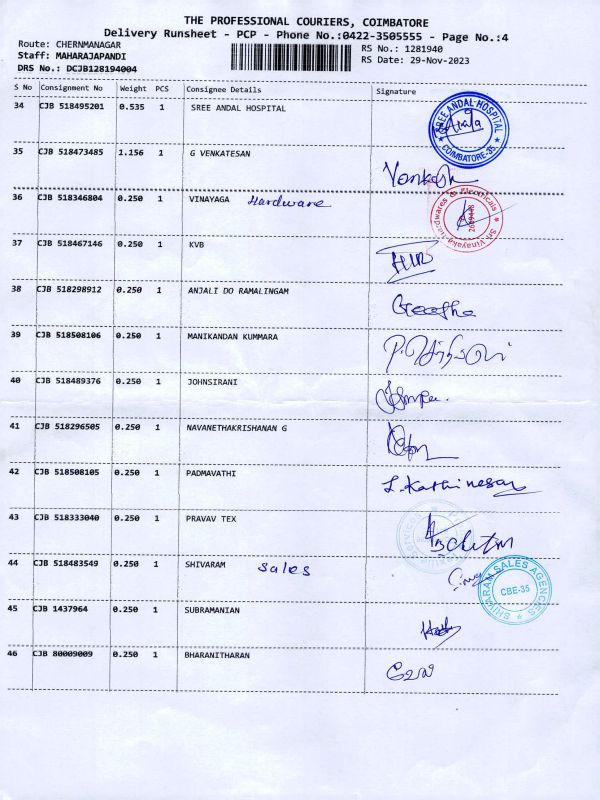 THE PROFESSIONAL COURIERS, COIMBATORE
Delivery Runsheet - PCP - Phone No.:0422-3505555 - Page No.:4
Route: CHERNMANAGAR
RS No.: 1281940
Staff: MAHARAJAPANDI
RS Date: 29-Nov-2023
DRS No.: DCJB128194004
S No Consignment No Weight PCS Consignee Details Signature
34 CJB 518495201 0.535 1 SREE ANDAL HOSPITAL
SREE ANDAL HOSPITAL
COIMBATORE-35
35 CJB 518473485 1.156 1 G VENKATESAN
Venkesh
36 CJB 518346804 0.250 1 VINAYAGA Hardware
Sri Vinayaka Hardwares & Electricals
37 CJB 518467146 0.250 1 KVB
38 CJB 518298912 0.250 1 ANJALI DO RAMALINGAM
Geetha
39 CJB 518508106 0.250 1 MANIKANDAN KUMMARA
40 CJB 518489376 0.250 1 JOHNSIRANI
41 CJB 518296505 0.250 1 NAVANETHAKRISHANAN G
42 CJB 518508105 0.250 1 PADMAVATHI
L. Kathiresan
43 CJB 518333040 0.250 1 PRAVAV TEX
44 CJB 518483549 0.250 1 SHIVARAM Sales
SHIVARAM SALES AGENCIES
CBE-35
45 CJB 1437964 0.250 1 SUBRAMANIAN
46 CJB 80009009 0.250 1 BHARANITHARAN